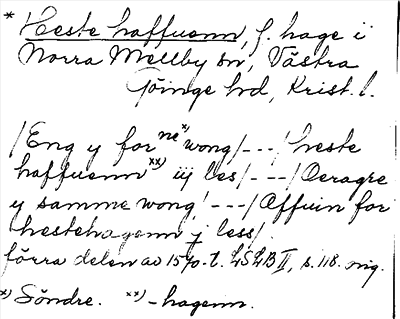 * Heste haffuenn, f. hage i
Norra Mellby sn, Västra
Göinge hd, Krist. l.
/Eng y for ne*) wong/---/heste
haffuenn **) iij les/---/Oeragre
y samme wong/---/Affuin for
hestehagenn j less/.
förra delen av 1570-t. LSLB II, s. 118. orig.
*) Söndre. **) -hagenn.